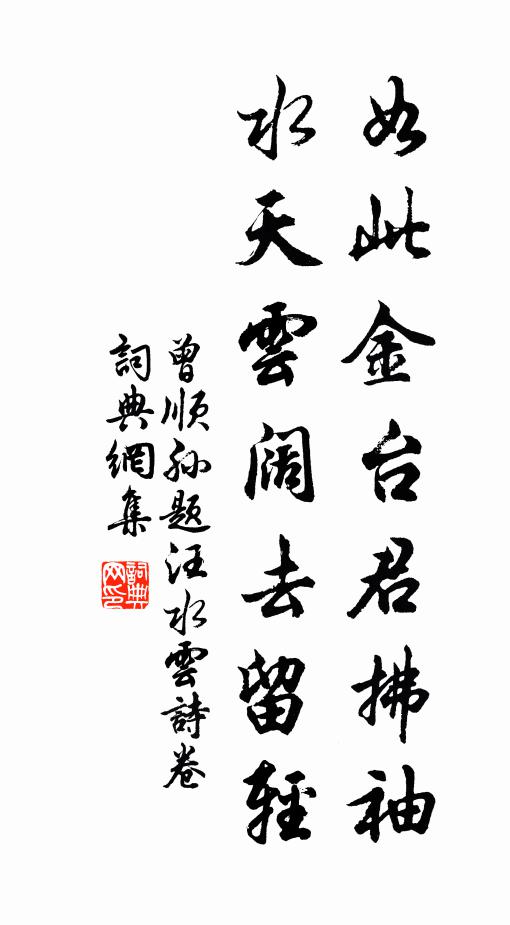 如此金台君拂袖
水天雲阔去留輕
曾顺孙题汪水雲詩卷
詞典網集
詞典网印